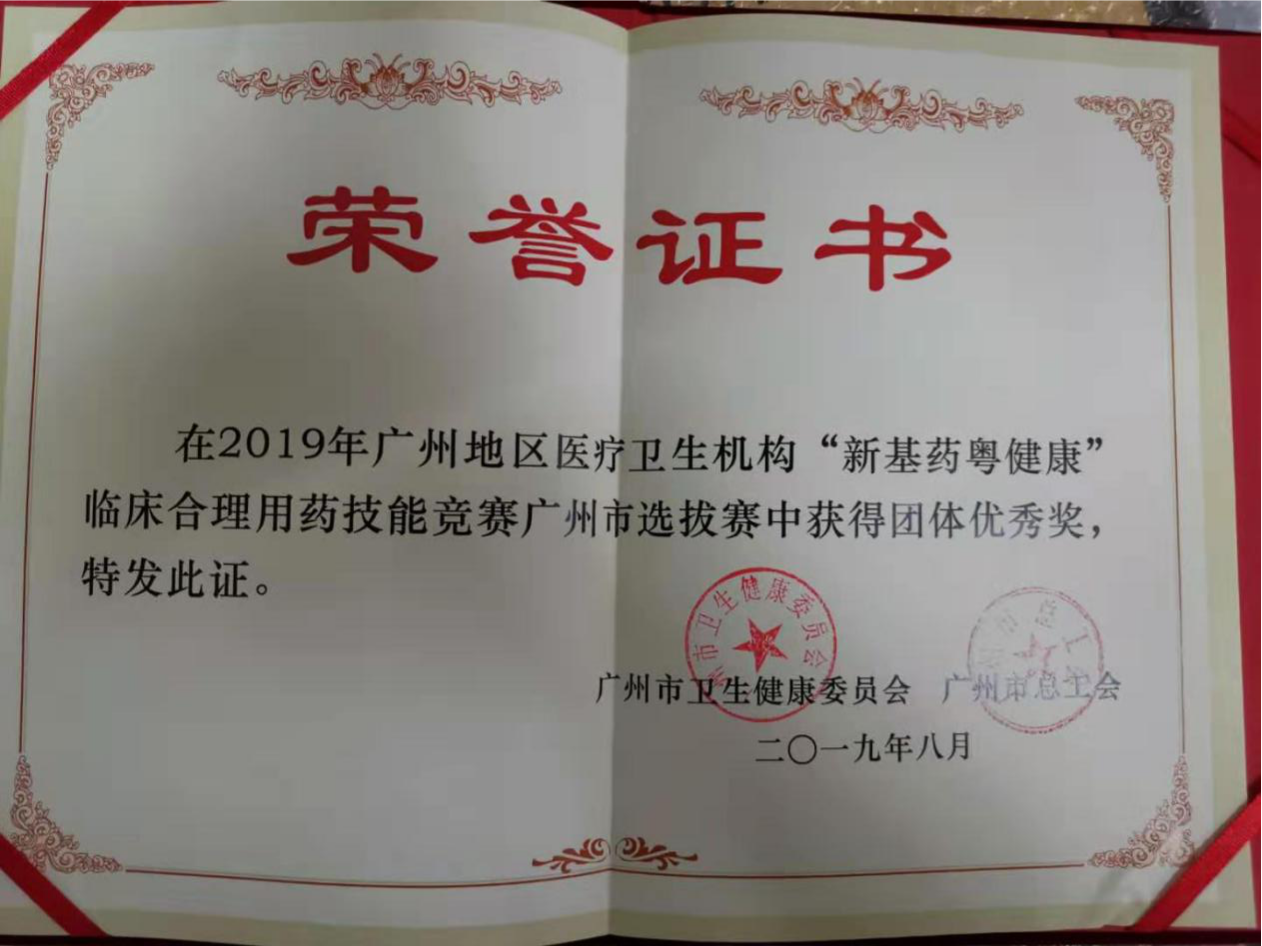 荣誉证书
在2019年广州地区医疗卫生机构“新基药粤健康”
临床合理用药技能竞赛广州市选拔赛中获得团体优秀奖，
特发此证。
州市卫生健康委员会
市总工
广州市卫生健康委员会 广州市总工会
二〇一九年八月